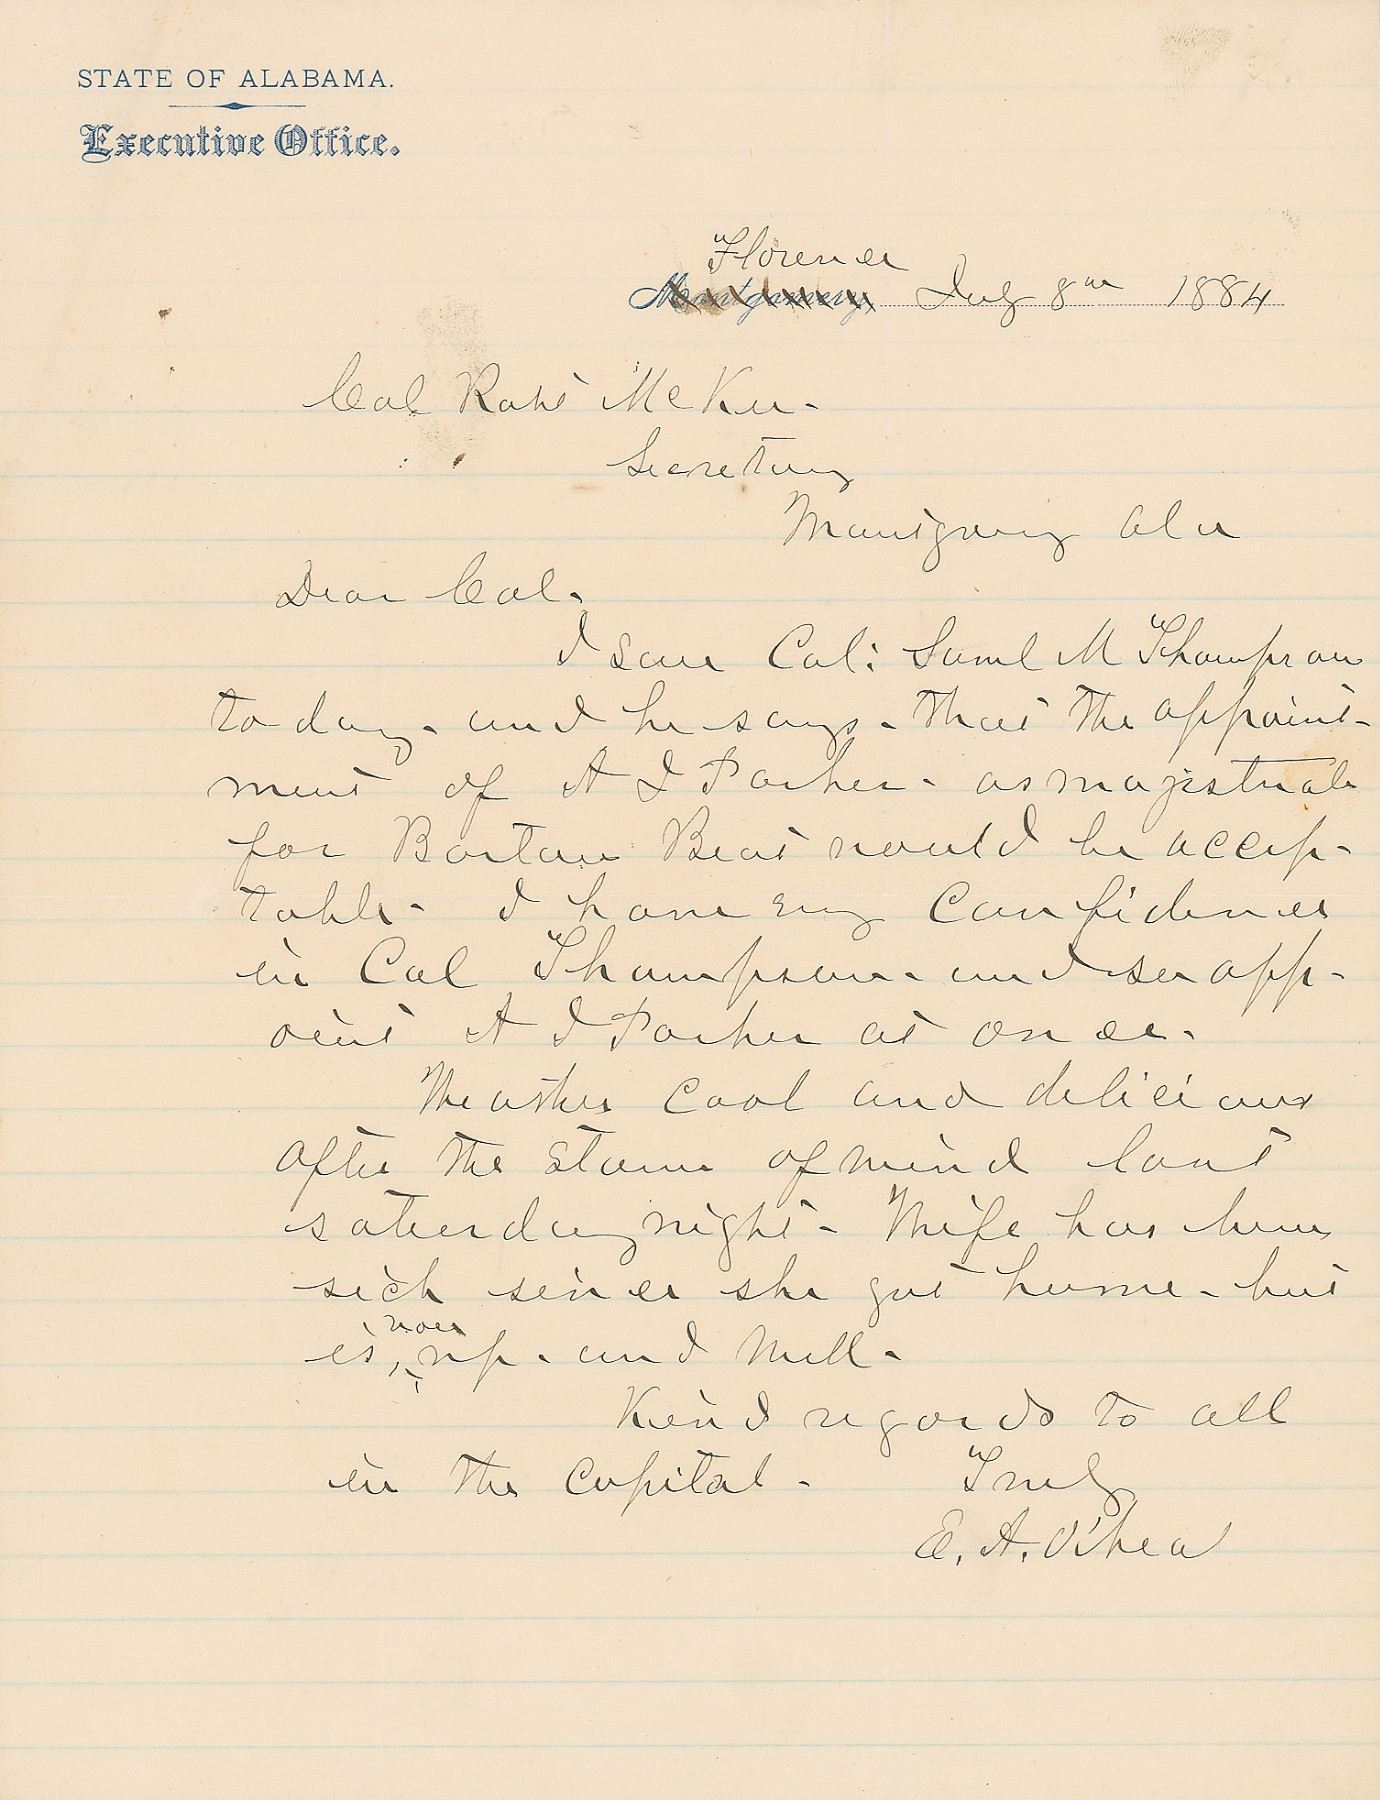 STATE OF ALABAMA.
Executive Office.
Florence
Montgomery July 8th 1884
Col Robt McKee-
Secretary
Montgomery Ala
Dear Col.
I saw Col: Saml M Thompson
to day. and he says. that the appoint-
ment of A J Parker. as majistrate
for Barton Beat would be accep-
table. I have evry confidence
in Col Thompson. and so app-
oint A J Parker at once.
Weather cool and delicious
after the storm of wind last
saturday night. Wife has been
sick since she got home. but
now
is, up. and well.
Kind regards to all
in the capital. Truly
E. A. O'Neal